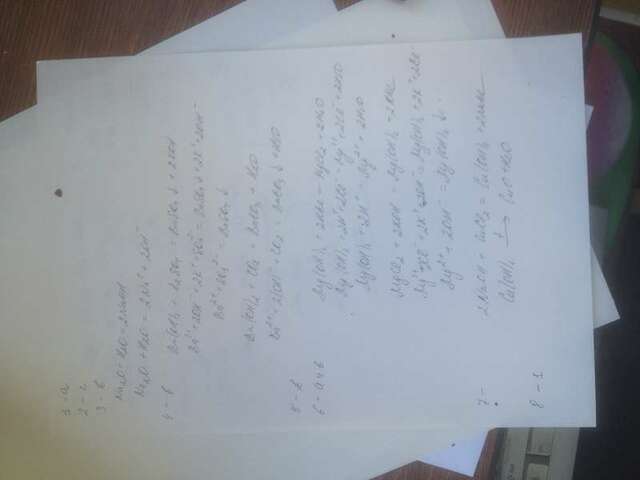 1 - а
2 - с
3 - в
Na2O + H2O = 2NaOH
Na2O + H2O = 2Na⁺ + 2OH⁻
4 - в
Ba(OH)2 + K2SO4 = BaSO4↓ + 2KOH
Ba²⁺ + 2OH⁻ + 2K⁺ + SO4²⁻ = BaSO4↓ + 2K⁺ + 2OH⁻
Ba²⁺ + SO4²⁻ = BaSO4↓
Ba(OH)2 + CO2 = BaCO3 + H2O
Ba²⁺ + 2(OH)⁻ + CO2 = BaCO3↓ + H2O
5 - в
6 - а и в
Mg(OH)2 + 2HCl = MgCl2 + 2H2O
Mg(OH)2 + 2H⁺ + 2Cl⁻ = Mg²⁺ + 2Cl⁻ + 2H2O
Mg(OH)2 + 2H⁺ = Mg²⁺ + 2H2O
MgCl2 + 2KOH = Mg(OH)2 + 2KCl
Mg²⁺ + 2Cl⁻ + 2K⁺ + 2OH⁻ = Mg(OH)2 + 2K⁺ + 2Cl⁻
Mg²⁺ + 2OH⁻ = Mg(OH)2↓
7 - 2NaOH + CuCl2 = Cu(OH)2 + 2NaCl
Cu(OH)2 →t CuO + H2O
8 - 1